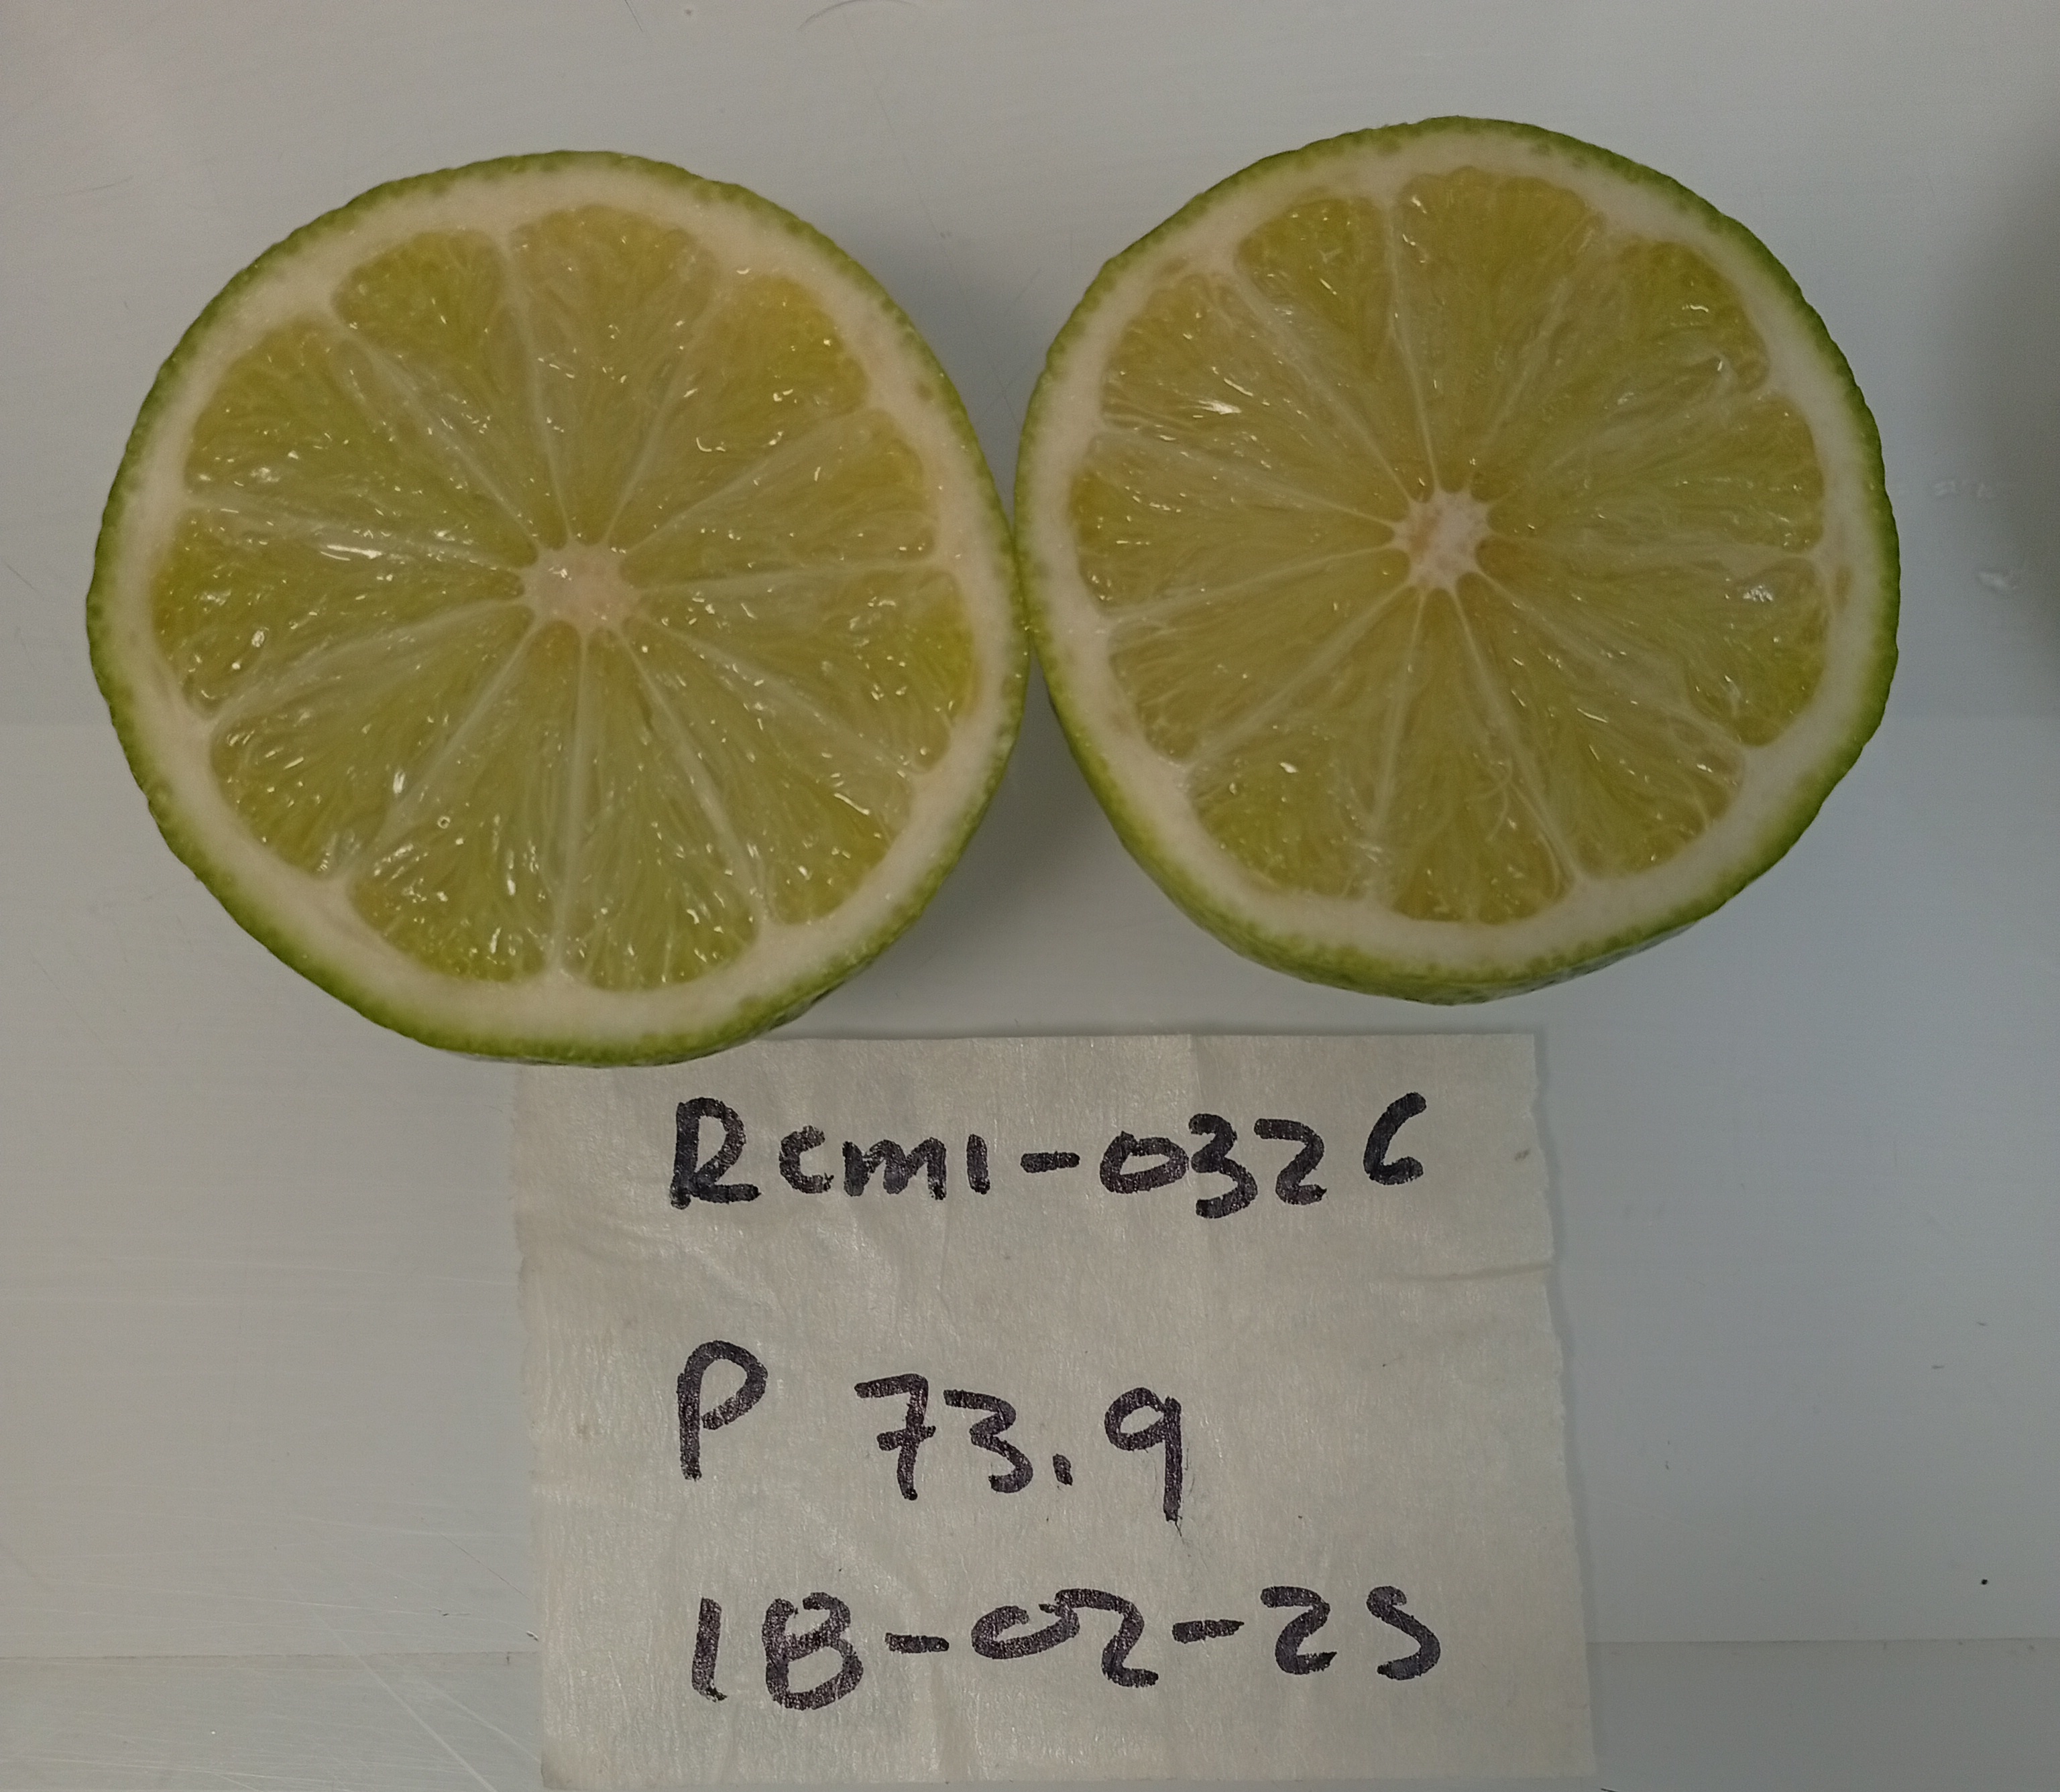 Rcm1-0326
P 73.9
18-02-25